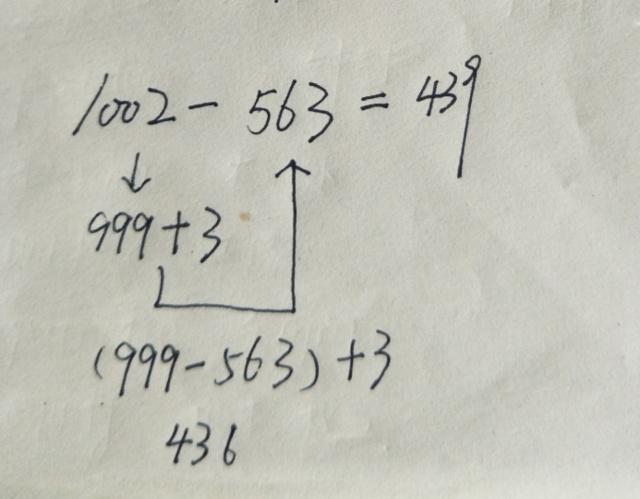 1002 - 563 = 439
↓
999 + 3
(999 - 563) + 3
436